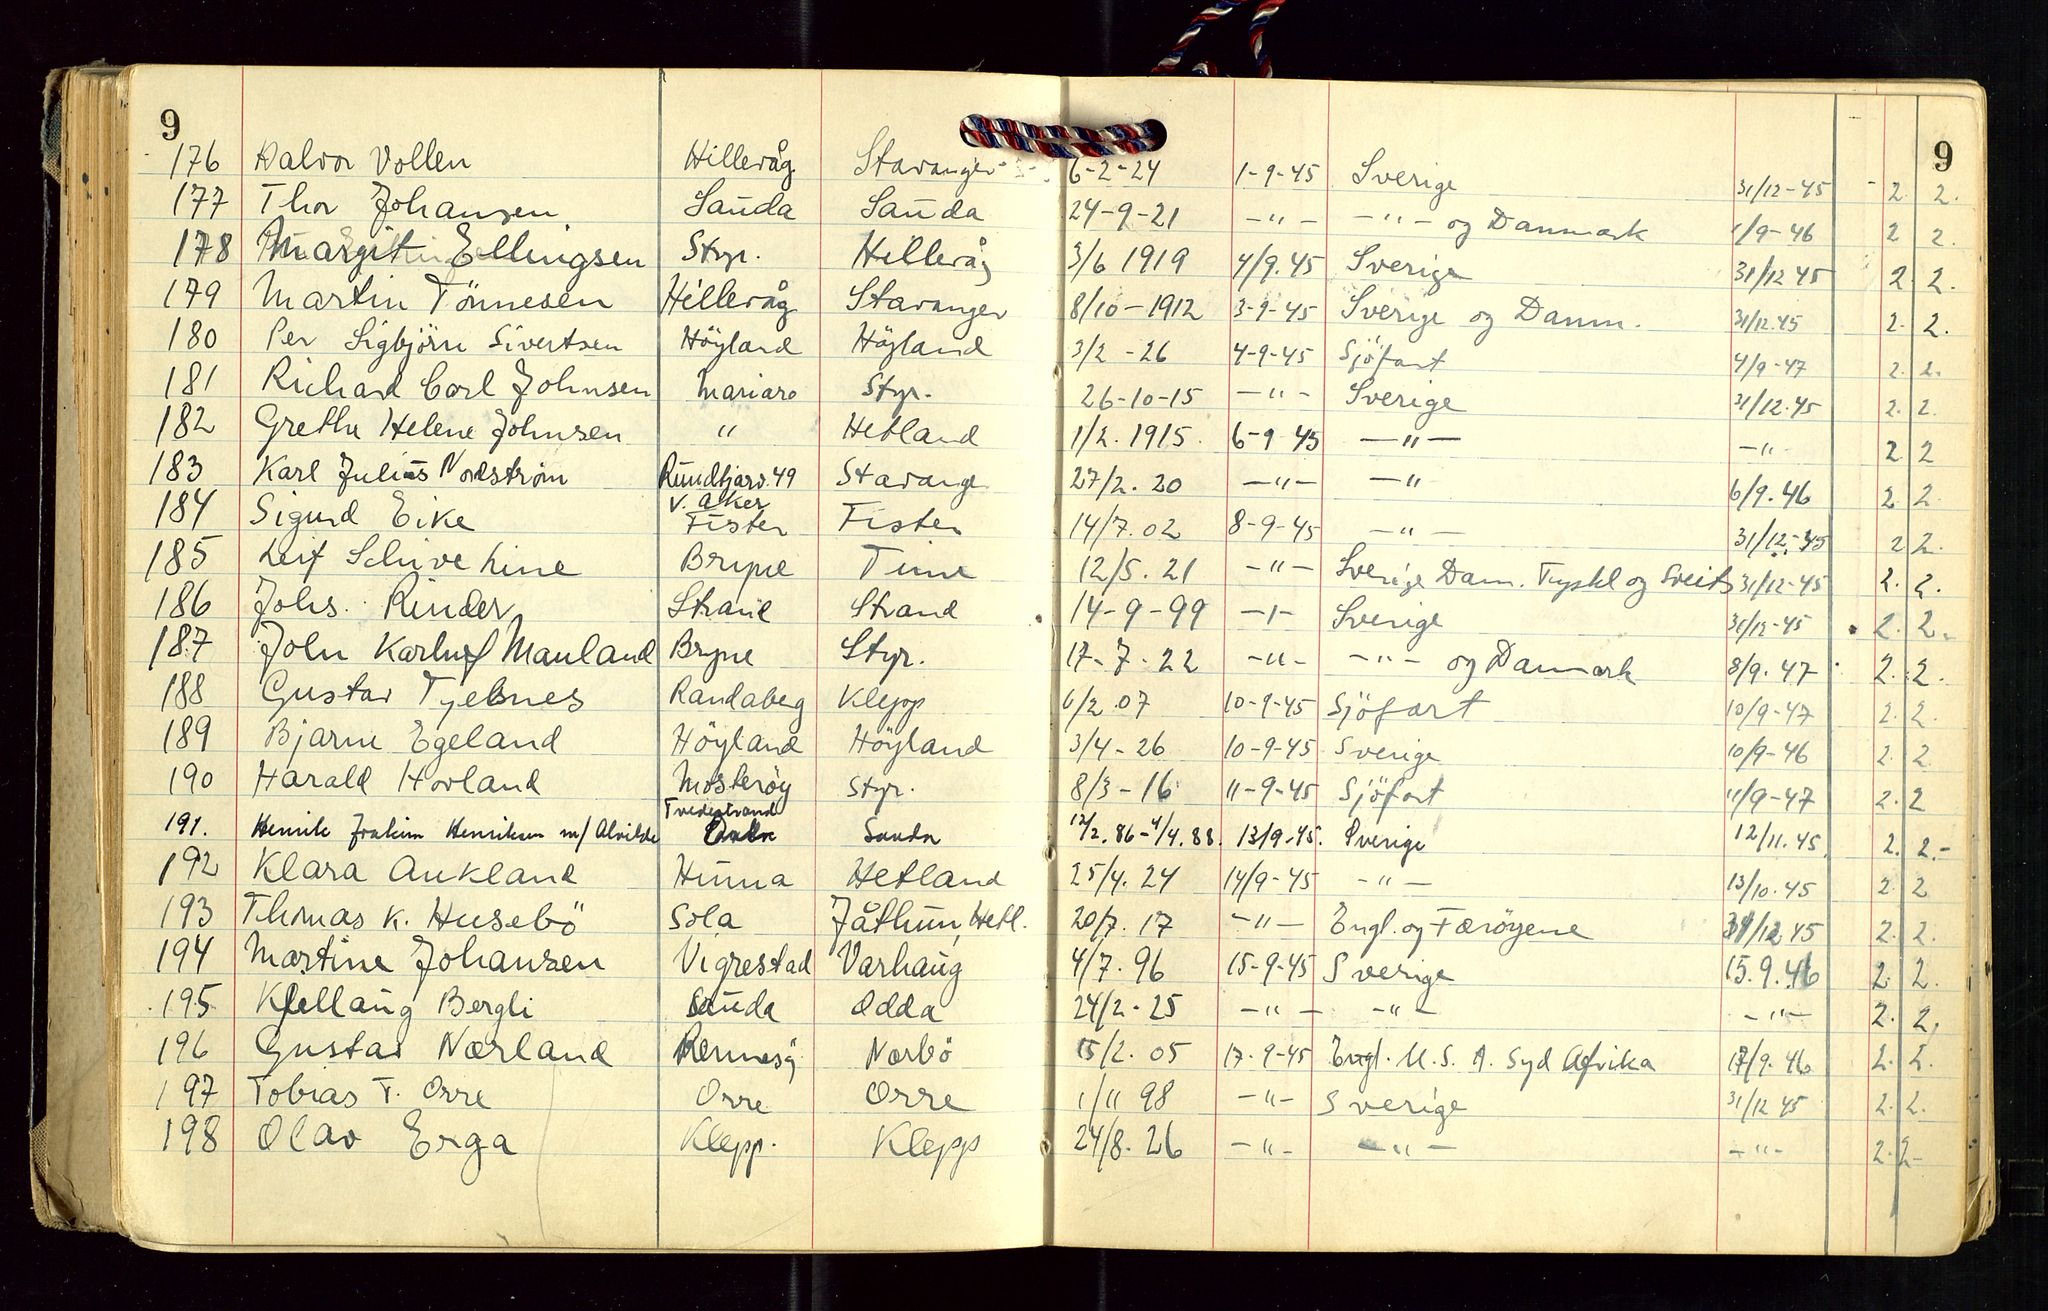 9 9
176 Halvor Vollen Hillevåg Stavanger 6-2-24 1-9-45 Sverige 31/12-45 2. 2.
177 Thor Johansen Sauda Sauda 24-9-21 -"- -"- og Danmark 1/9-46 2 2.
178 Margit Ellingsen Styr. Hillevåg 3/6 1919 4/9.45 Sverige 31/12 45 2. 2.
179 Martin Tönnesen Hillevåg Stavanger 8/10-1912 3-9-45 Sverige og Danm. 31/12.45 2. 2.
180 Per Sigbjörn Sivertsen Höyland Höyland 3/2-26 4-9-45 Sjöfart 4/9-47 2. 2.
181 Richard Carl Johnsen Mariaro Styr. 26-10-15 -"- Sverige 31/12.45 2. 2.
182 Grethe Helene Johnsen " Hetland 1/2.1915. 6-9 45 -"- -"- 2 2
183 Karl Julius Nordström 49 Stavange 27/2.20 -"- -" 6/9.46 2 2
v. Aker
184 Sigurd Eike Fister Fister 14/7.02 8-9-45 -"- 31/12-45 2 2.
185 Leif Bryne Time 12/5.21 -"- Sverige Danm. Tyskl og Sveits 31/12-45 2. 2.
186 Johs. Rinder Strand Strand 14-9-99 -"- Sverige 31/12-45 2. 2.
187 John Karluf Mauland Bryne Styr. 17-7-22 -"- -"- og Danmark 8/9.47 2. 2.
188 Gustav Tjelsnes Randaberg Klepp 6/2 07 10-9-45 Sjöfart 10/9-47 2. 2.
189 Bjarne Egeland Höyland Höyland 3/4-26 10-9-45 Sverige 10/9-46 2. 2
190 Harald Hovland Mosteröy Styr. 8/3-16 11-9-45 Sjöfart 11/9-47 2. 2
Tvedestrand
191. Henrik Joakim Henriksen m/ Alvilde Sauda 12/2.86-4/4.88. 13/9.45. Sverige 12/11.45. 2. 2.-
192 Klara Aukland Hinna Hetland 25/4.24 14/9-45 -"- 13/10.45 2. 2
193 Thomas K. Husebö Sola Jåttun, Hetl. 20/7.17 -"- Engl. og Færöyene 31/12 45 2. 2.
194 Martine Johansen Vigrestad Varhaug 4/7.96 15-9-45 Sverige 15.9.46 2. 2.
195 Kjellaug Bergli Sauda Odda 24/2-25 -"- -"- -"- 2. 2.
196 Gustav Nærland Rennesöy Nærbö 15/2.05 17.9-45 Engl. U.S.A. Syd Afrika 17/9.46 2. 2.
197 Tobias T. Orre Orre Orre 1/11 98 -"- Sverige 31/12 45 2. 2.
198 Olav Erga Klepp. Klepp 24/8.26 -"- -"- -"- 2. 2-